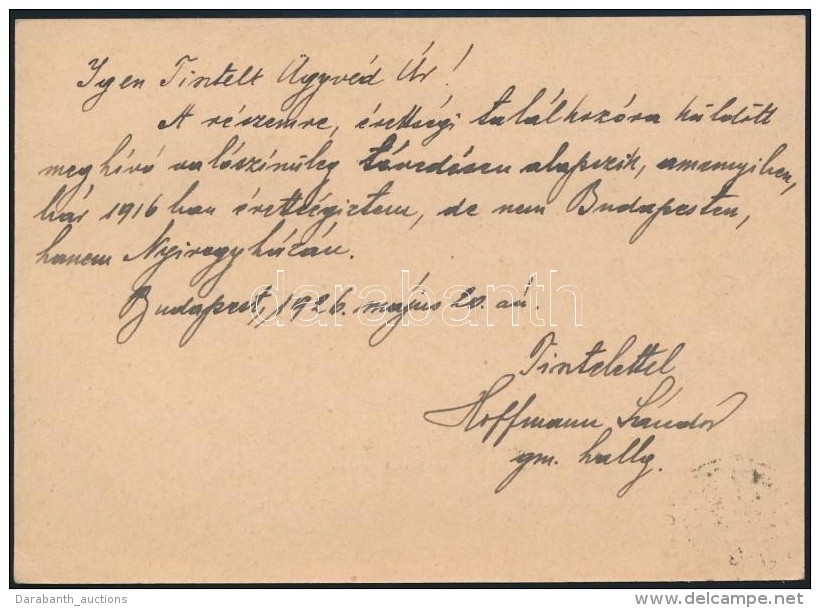 Igen Tisztelt Ügyvéd Úr!
A részemre, érettségi találkozóra küldött
meghívó valószínűleg tévedésen alapszik, amenyiben,
bár 1916 ban érettségiztem, de nem Budapesten,
hanem Nyiregyházán.
darabanth
Budapest, 1926. május 20. án.
Tisztelettel
Hoffmann Sándor
gm. hallg.
Darabanth_auctions
delcampe.net